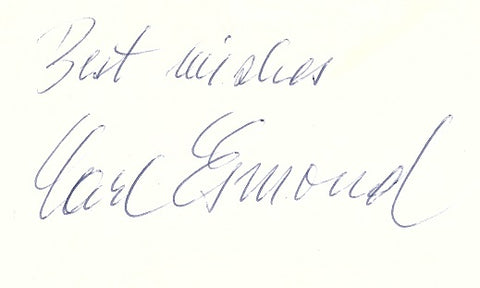 Best wishes
Carl Esmond